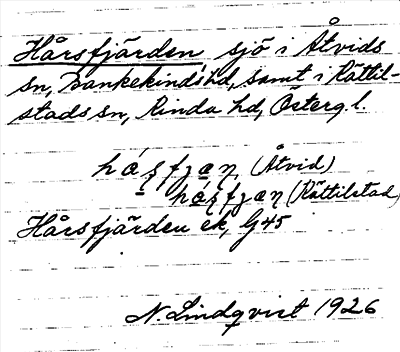 Hårsfjärden, sjö i Åtvids
sn, Bankekinds hd, samt i Rättil-
stads sn, Kinda hd, Österg. l.
(Åtvid)
(Rättilstad)
Hårsfjärden ek, G45
N. Lindqvist 1926